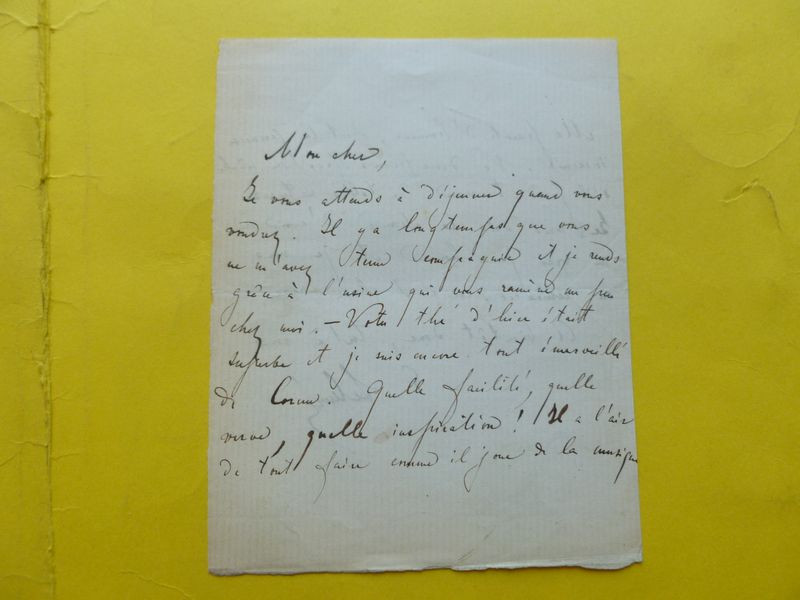 Mon cher,
Je vous attends à déjeuner quand vous
voudrez. Il y a longtemps que vous
ne m'avez tenu compagnie et je rends
grâce à l'usine qui vous ramène un peu
chez moi. — Votre thé d'hier était
superbe et je suis encore tout émerveillé
de. Quelle facilité, quelle
verve, quelle inspiration ! Il a l'air
de tout faire comme il joue de la musique